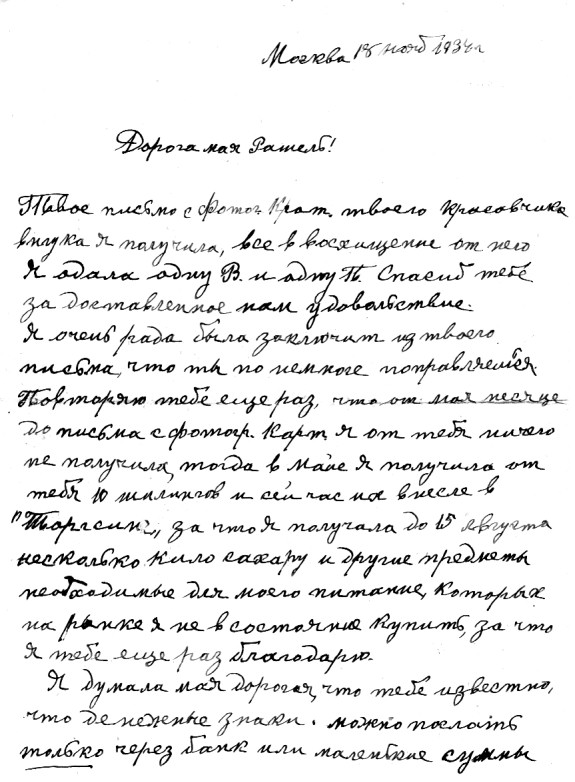 Москва 18 нояб 1934 г
Дорога мая Рашель!
Твое письмо с фотог. Крат. твоего красовчика
внука я получила, все в восхищение от него
Я одала одну В. и одну П. Спасиб тебе
за доставленное нам удовольствие.
Я очень рада была заключит из твоего
письма, что ты по немноге поправляешься.
Повторяю тебе еще раз, что от мая месяце
до письма с фотогр. Карт. я от тебя ничего
не получила, тогда в мае я получила от
тебя 10 шилингов и сейчас их внесле в
"Торгсин", за что я получала до 15 Августа
несколько кило сахару и другие предметы
необходимые для моего питание, которых
на рынке я не в состояние купить, за что
я тебе еще раз благодарю.
Я думала мая дорогая, что тебе известно,
что денежные знаки. можно послать
только через банк или маленкие суммы